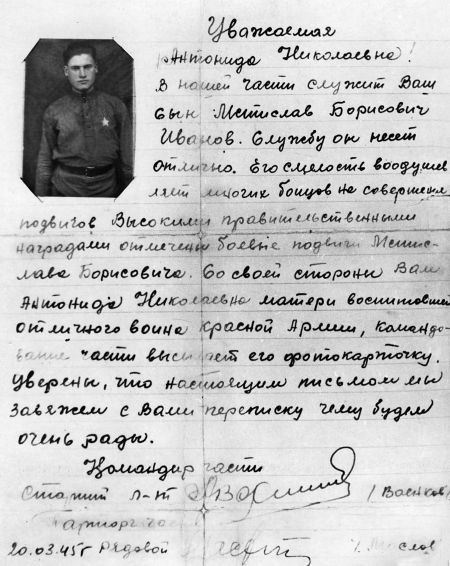 Уважаемая
Антонида Николаевна!
В нашей части служит Ваш
сын Мстислав Борисович
Иванов. Службу он несет
отлично. Его смелость воодушев
ляет многих бойцов на совершение
подвигов Высокими правительственными
наградами отмечены боевые подвиги Мстис-
лава Борисовича. Со своей стороны Вам
Антонида Николаевна матери воспитавшей
отличного воина Красной Армии, командо-
вание части высылает его фотокарточку.
Уверены, что настоящим письмом мы
завяжем с Вами переписку чему будем
очень рады.
Командир части
Старший л-нт /Васнков/
Парторг части
20.03.45г Рядовой